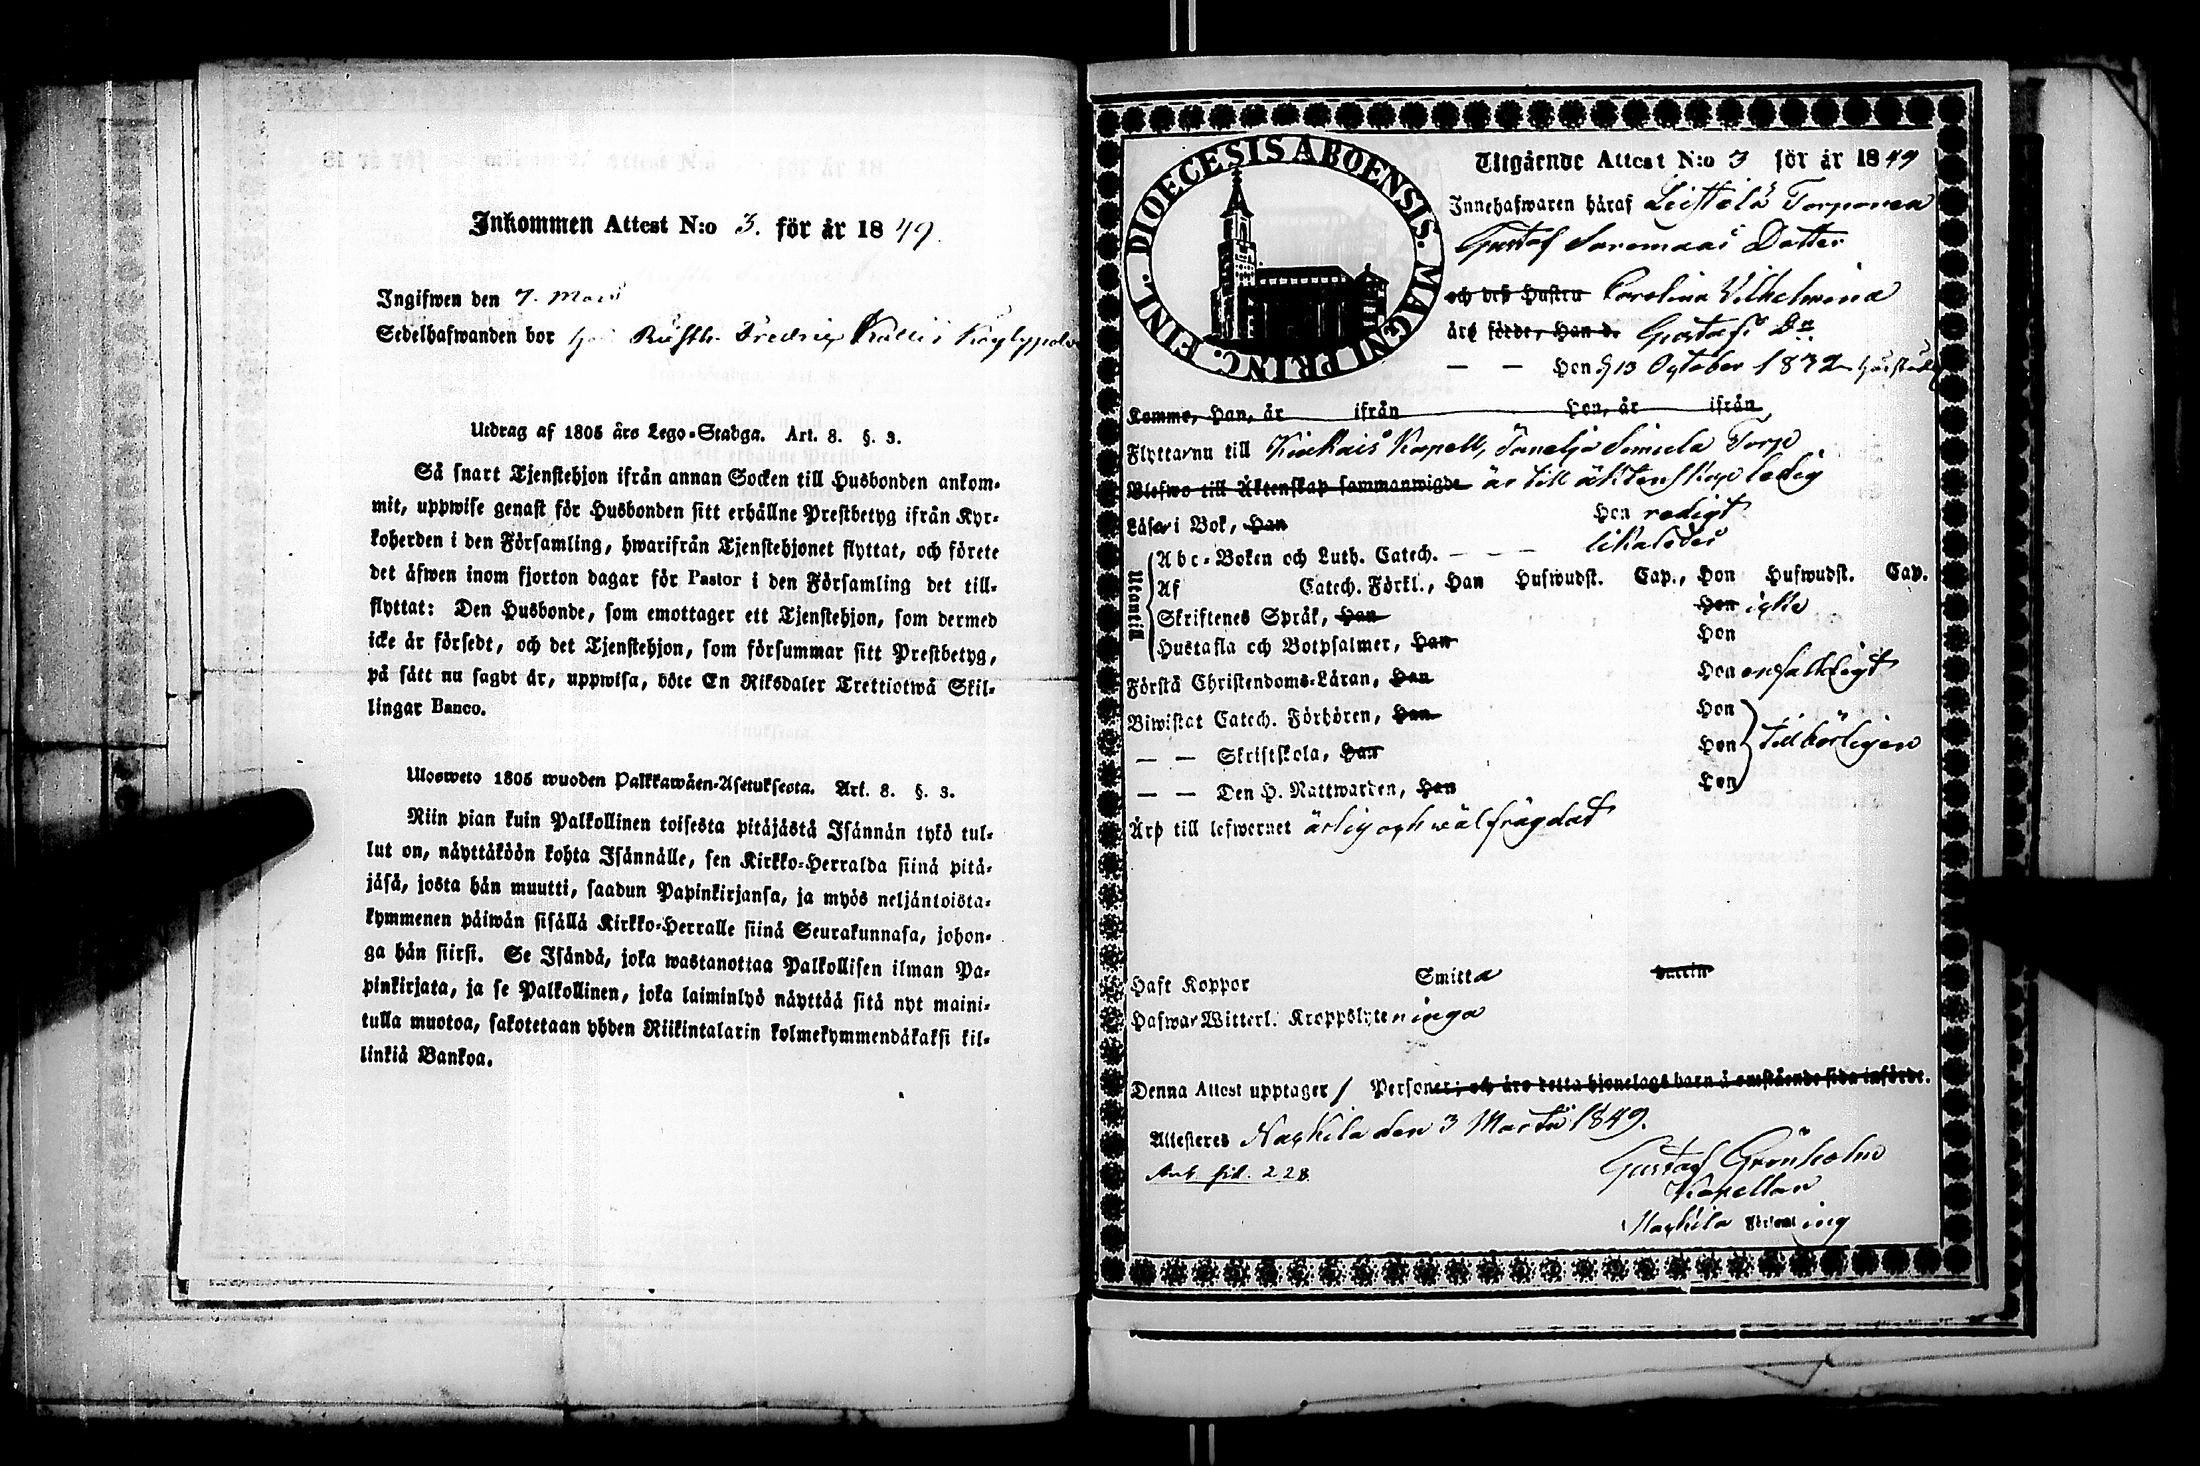 Inkommen Attest N:o 3. för år 1849.
Ingifwen den 7. Mars
Sedelhafwanden bor hos Rusth. Fredric Kallis Köylypolvi
Utdrag af 1805 års Lego-Stadga. Art. 8. §. 3.
Så snart Tjenstehjon ifrån annan Socken till Husbonden ankom-
mit, uppwise genast för Husbonden sitt erhållne Prestbetyg ifrån Kyr-
koherden i den Församling, hwarifrån Tjenstehjonet flyttat, och förete
det äfwen inom fjorton dagar för Pastor i den Församling det till-
flyttat: Den Husbonde, som emottager ett Tjenstehjon, som dermed
icke är försedt, och det Tjenstehjon, som försummar sitt Prestbetyg,
på sätt nu sagdt är, uppwisa, böte En Riksdaler Trettiotwå Skil-
lingar Banco.
Ulosweto 1805 wuoden Palkkawäen-Asetuksesta. Art. 8. §. 3.
Niin pian kuin Palkollinen toisesta pitäjästä Isännän tykö tul-
lut on, näyttäköön kohta Isännälle, sen Kirkko-Herralda siinä pitä-
jäsä, josta hän muutti, saadun Papinkirjansa, ja myös neljäntoista-
kymmenen päiwän sisällä Kirkko-Herralle siinä Seurakunnasa, johon-
ga hän siirsi. Se Isändä, joka wastanottaa Palkollisen ilman Pa-
pinkirjata, ja se Palkollinen, joka laiminlyö näyttää sitä nyt maini-
tulla muotoa, sakotetaan yhden Riikintalarin kolmekymmendäkaksi kil-
linkiä Bankoa.
DIOECESIS ABOENSIS. MAGNI PRINC. FINL.
Utgående Attest N:o 3 för år 1849
Innehafwaren häraf Leistilä Torparen
Gustaf Saromaas Dotter
och dess Hustru Carolina Vilhelmina
äro födde, Han d. Gustafs Dr
— — Hon d 13 October 1832
Kommo, Han, år ifrån Hon, år ifrån
Flyttar nu till Kiukais Kapell, Simula Torp
Blefwo till Äktenskap sammanwigde är till äktenskap ledig
Läser i Bok, Han Hon redigt
Utantill
Abc-Boken och Luth. Catech. — — — likaledes
Af Catech. Förkl., Han Hufwudst. Cap., Hon Hufwudst. Cap.
Skriftenes Språk, Han Hon icke
Hustafla och Botpsalmer, Han Hon
Förstå Christendoms-Läran, Han Hon enfaldigt
Biwistat Catech. Förhören, Han Hon
— — Skriftskola, Han Hon tillbörligen
— — Den H. Nattwarden, Han Hon
Äro till lefwernet ärlig och wälfrägdad
Haft Koppor Smitta Vaccin
Hafwar Witterl. Kroppslyten inga
Denna Attest upptager 1 Personer; och äro detta hjonelags barn å omstående sida införde.
Attesteres Nakkila den 3 Martii 1849.
fil. 228
Gustaf Grönholm
Kapellan
Nakkila Församling